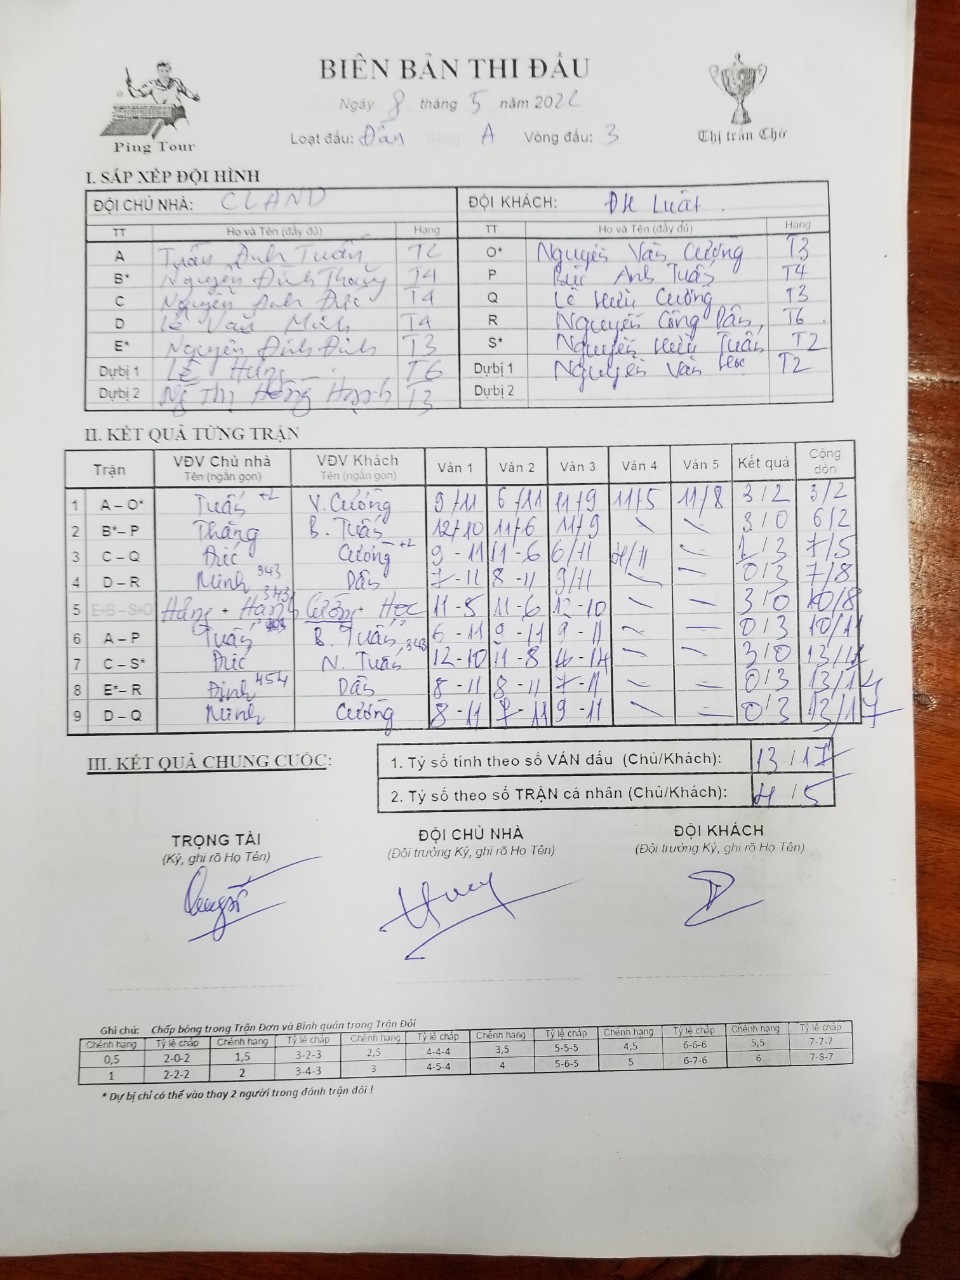 BIÊN BẢN THI ĐẤU
Ngày 8 tháng 5 năm 2022
Loạt đấu: Đấu A Vòng đấu: 3
Ping Tour
Thị trấn Chờ
I. SẮP XẾP ĐỘI HÌNH
ĐỘI CHỦ NHÀ: CLAND ĐỘI KHÁCH: ĐH Luật
TT Họ và Tên (đầy đủ) Hạng TT Họ và Tên (đầy đủ) Hạng
A Trần Anh Tuấn T2 O* Nguyễn Văn Cường T3
B* Nguyễn Đình Thắng T4 P Bùi Anh Tuấn T4
C Nguyễn Anh Đức T4 Q Lê Hữu Cường T3
D Lê Văn Minh T4 R Nguyễn Công Dân T6
E* Nguyễn Đình Định T3 S* Nguyễn Hữu Tuấn T2
Dự bị 1 Lê Hùng T6 Dự bị 1 Nguyễn Văn Học T2
Dự bị 2 Ng Thị Hồng Hạnh T3 Dự bị 2
II. KẾT QUẢ TỪNG TRẬN
Trận VĐV Chủ nhà VĐV Khách Ván 1 Ván 2 Ván 3 Ván 4 Ván 5 Kết quả Cộng dồn
Tên (ngắn gọn) Tên (ngắn gọn)
1 A – O* Tuấn +2 V. Cường 9/11 6/11 11/9 11/5 11/8 3/2 3/2
2 B* – P Thắng B. Tuấn 12/10 11/6 11/9 3/0 6/2
3 C – Q Đức Cường +2 9-11 11-6 6/11 /11 1/3 7/5
4 D – R Minh 343 Dân 7-11 8-11 9/11 0/3 7/8
5 E+B – S+O Hùng + Hạnh 343 Cường + Học 11-5 11-6 12-10 3/0 10/8
6 A – P Tuấn B. Tuấn 6-11 9-11 9-11 0/3 10/11
7 C – S* Đức N. Tuấn 343 12-10 11-8 3/0 13/11
8 E* – R Định 454 Dân 8-11 8-11 7-11 0/3 13/14
9 D – Q Minh Cường 8-11 7-11 9-11 0/3 13/17
III. KẾT QUẢ CHUNG CUỘC:
1. Tỷ số tính theo số VÁN đấu (Chủ/Khách): 13/17
2. Tỷ số theo số TRẬN cá nhân (Chủ/Khách): 4/5
TRỌNG TÀI ĐỘI CHỦ NHÀ ĐỘI KHÁCH
(Ký, ghi rõ Họ Tên) (Đội trưởng Ký, ghi rõ Họ Tên) (Đội trưởng Ký, ghi rõ Họ Tên)
Ghi chú: Chấp bóng trong Trận Đơn và Bình quân trong Trận Đôi
Chênh hạng Tỷ lệ chấp Chênh hạng Tỷ lệ chấp Chênh hạng Tỷ lệ chấp Chênh hạng Tỷ lệ chấp Chênh hạng Tỷ lệ chấp Chênh hạng Tỷ lệ chấp
0,5 2-0-2 1,5 3-2-3 2,5 4-4-4 3,5 5-5-5 4,5 6-6-6 5,5 7-7-7
1 2-2-2 2 3-4-3 3 4-5-4 4 5-6-5 5 6-7-6 6 7-8-7
* Dự bị chỉ có thể vào thay 2 người trong đánh trận đôi !